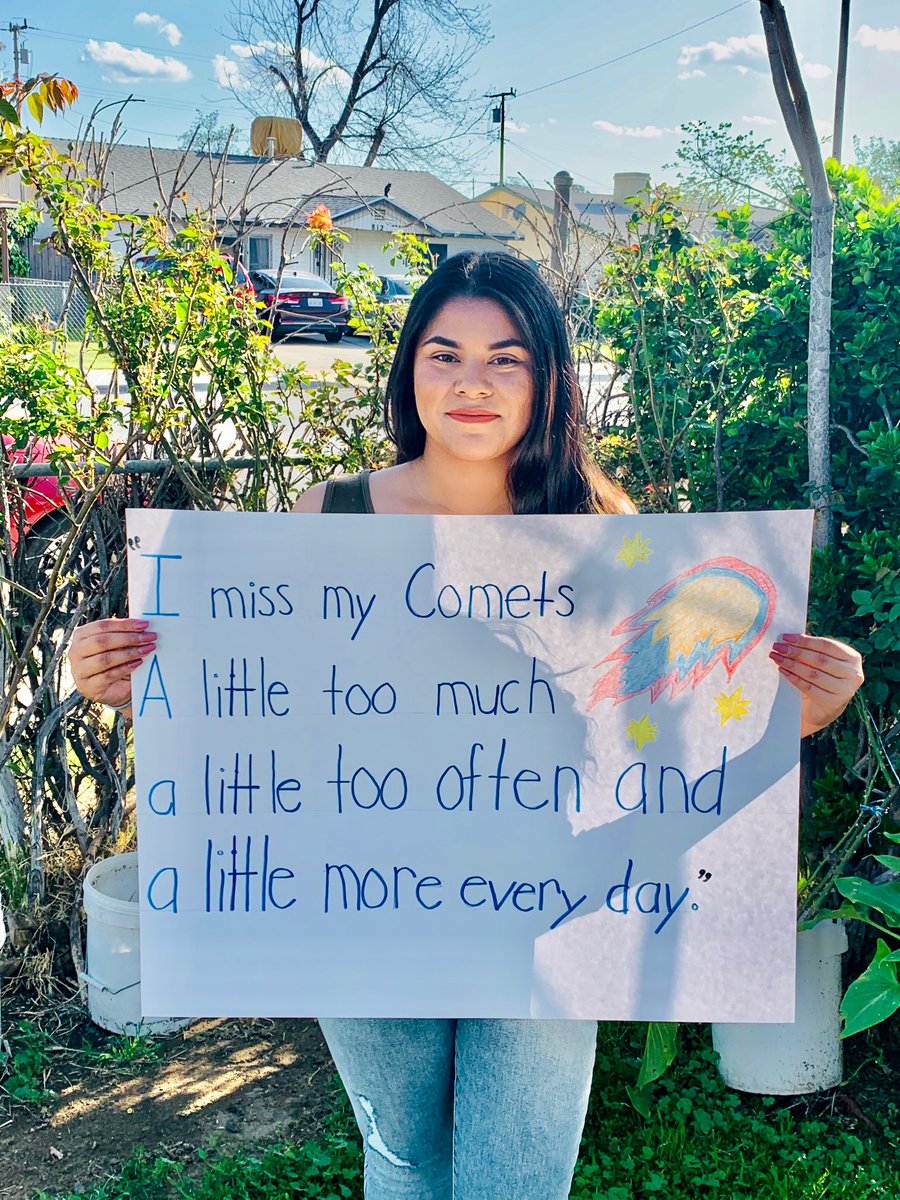 "I miss my Comets
A little too much
a little too often and
a little more every day."